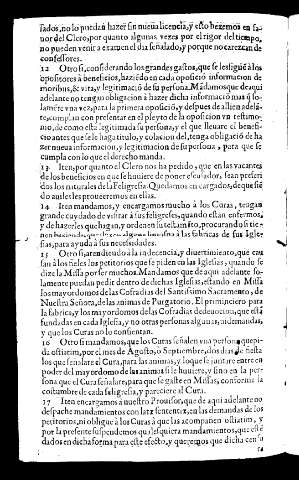 sados, no lo puedan hazer sin nueua licencia, y esto hezemos en fa-
uor del Clero, por quanto algunas vezes por el rigor del tiempo,
no pueden venir a examen el dia señalado, y porque no carezcan de
confessores.
12 Otro si, considerando los grandes gastos, que se les sigue à los
opositores à beneficios, haziēdo en cada oposiciō informacion de
moribus, & vita, y legitimaciō de su persona. Mādamos que de aqui
adelante no tengan obligacion à hazer dicha informaciō mas q̃ so-
lamēte vna vez, para la primera oposiciō, y despues de alli en delā-
te, cumplan con presentar en el pleyto de la oposicion vn testimo-
nio, de como esta legitimada su persona, y el que lleuare el benefi-
cio antes que se le haga titulo, y colacion del, tenga obligaciō de ha
zer nueua informacion, y legitimacion de su persona, para que se
cumpla con lo que el derecho manda.
13 Iten, por quanto el Clero nos ha pedido, que en las vacantes
de los beneficios en que se huuiere de poner escusador, sean preferi
dos los naturales de la Feligresia. Quedamos encargados, de que siē
do ausiles les proueeremos en ellas.
14 Iten mandamos, y encargamos mucho à los Curas, tengan
grande cuydado de visitar à sus feligreses, quando estan enfermos,
y de hazerles que hagan, y ordenen su testamēto, procurando si tie-
nen hazienda, que dexen alguna limosna à las fabricas de sus Igle-
sias, para ayuda à sus necessidades.
15 Otro si, atendiendo à la indecencia, y diuertimiento, que cau
san à los fieles los petitorios que se piden en las Iglesias, quando se
dize la Missa por ser muchos. Mandamos que de aqui adelante so-
lamente puedan pedir dentro de dichas Iglesias, estando en Missa
los mayordomos de las Cofradias del Santissimo Sacramento, de
Nuestra Señora, de las animas de Purgatorio. El priminciero para
la fabrica, y los mayordomos de las Cofradias de deuocion, que estā
fundadas en cada Iglesia, y no otras personas algunas, ni demandas,
y que los Curas no lo consientan.
16 Otro si mandamos, que los Curas señalen vna persona q̃ pi-
da ostiatim, por el mes de Agosto, o Septiembre, dos dias de fiesta
los que señalare el Cura, para las animas, y lo que se juntare entre en
poder del mayordomo de las animas si le huuiere, y sino en la per-
sona que el Cura señalare, para que se gaste en Missas, conforme la
costumbre de cada feligresia, y pareciere al Cura.
17 Iten encargamos à nuestro Prouisor, que de aqui adelante no
despache mandamientos con latæ sententiæ, en las demandas de los
petitorios, ni obligue à los Curas à que las acompañen ostiatim, y
por la presente suspendemos qualesquiera mandamientos, que estē
dados en dicha forma para este efecto, y queremos que dicha cen